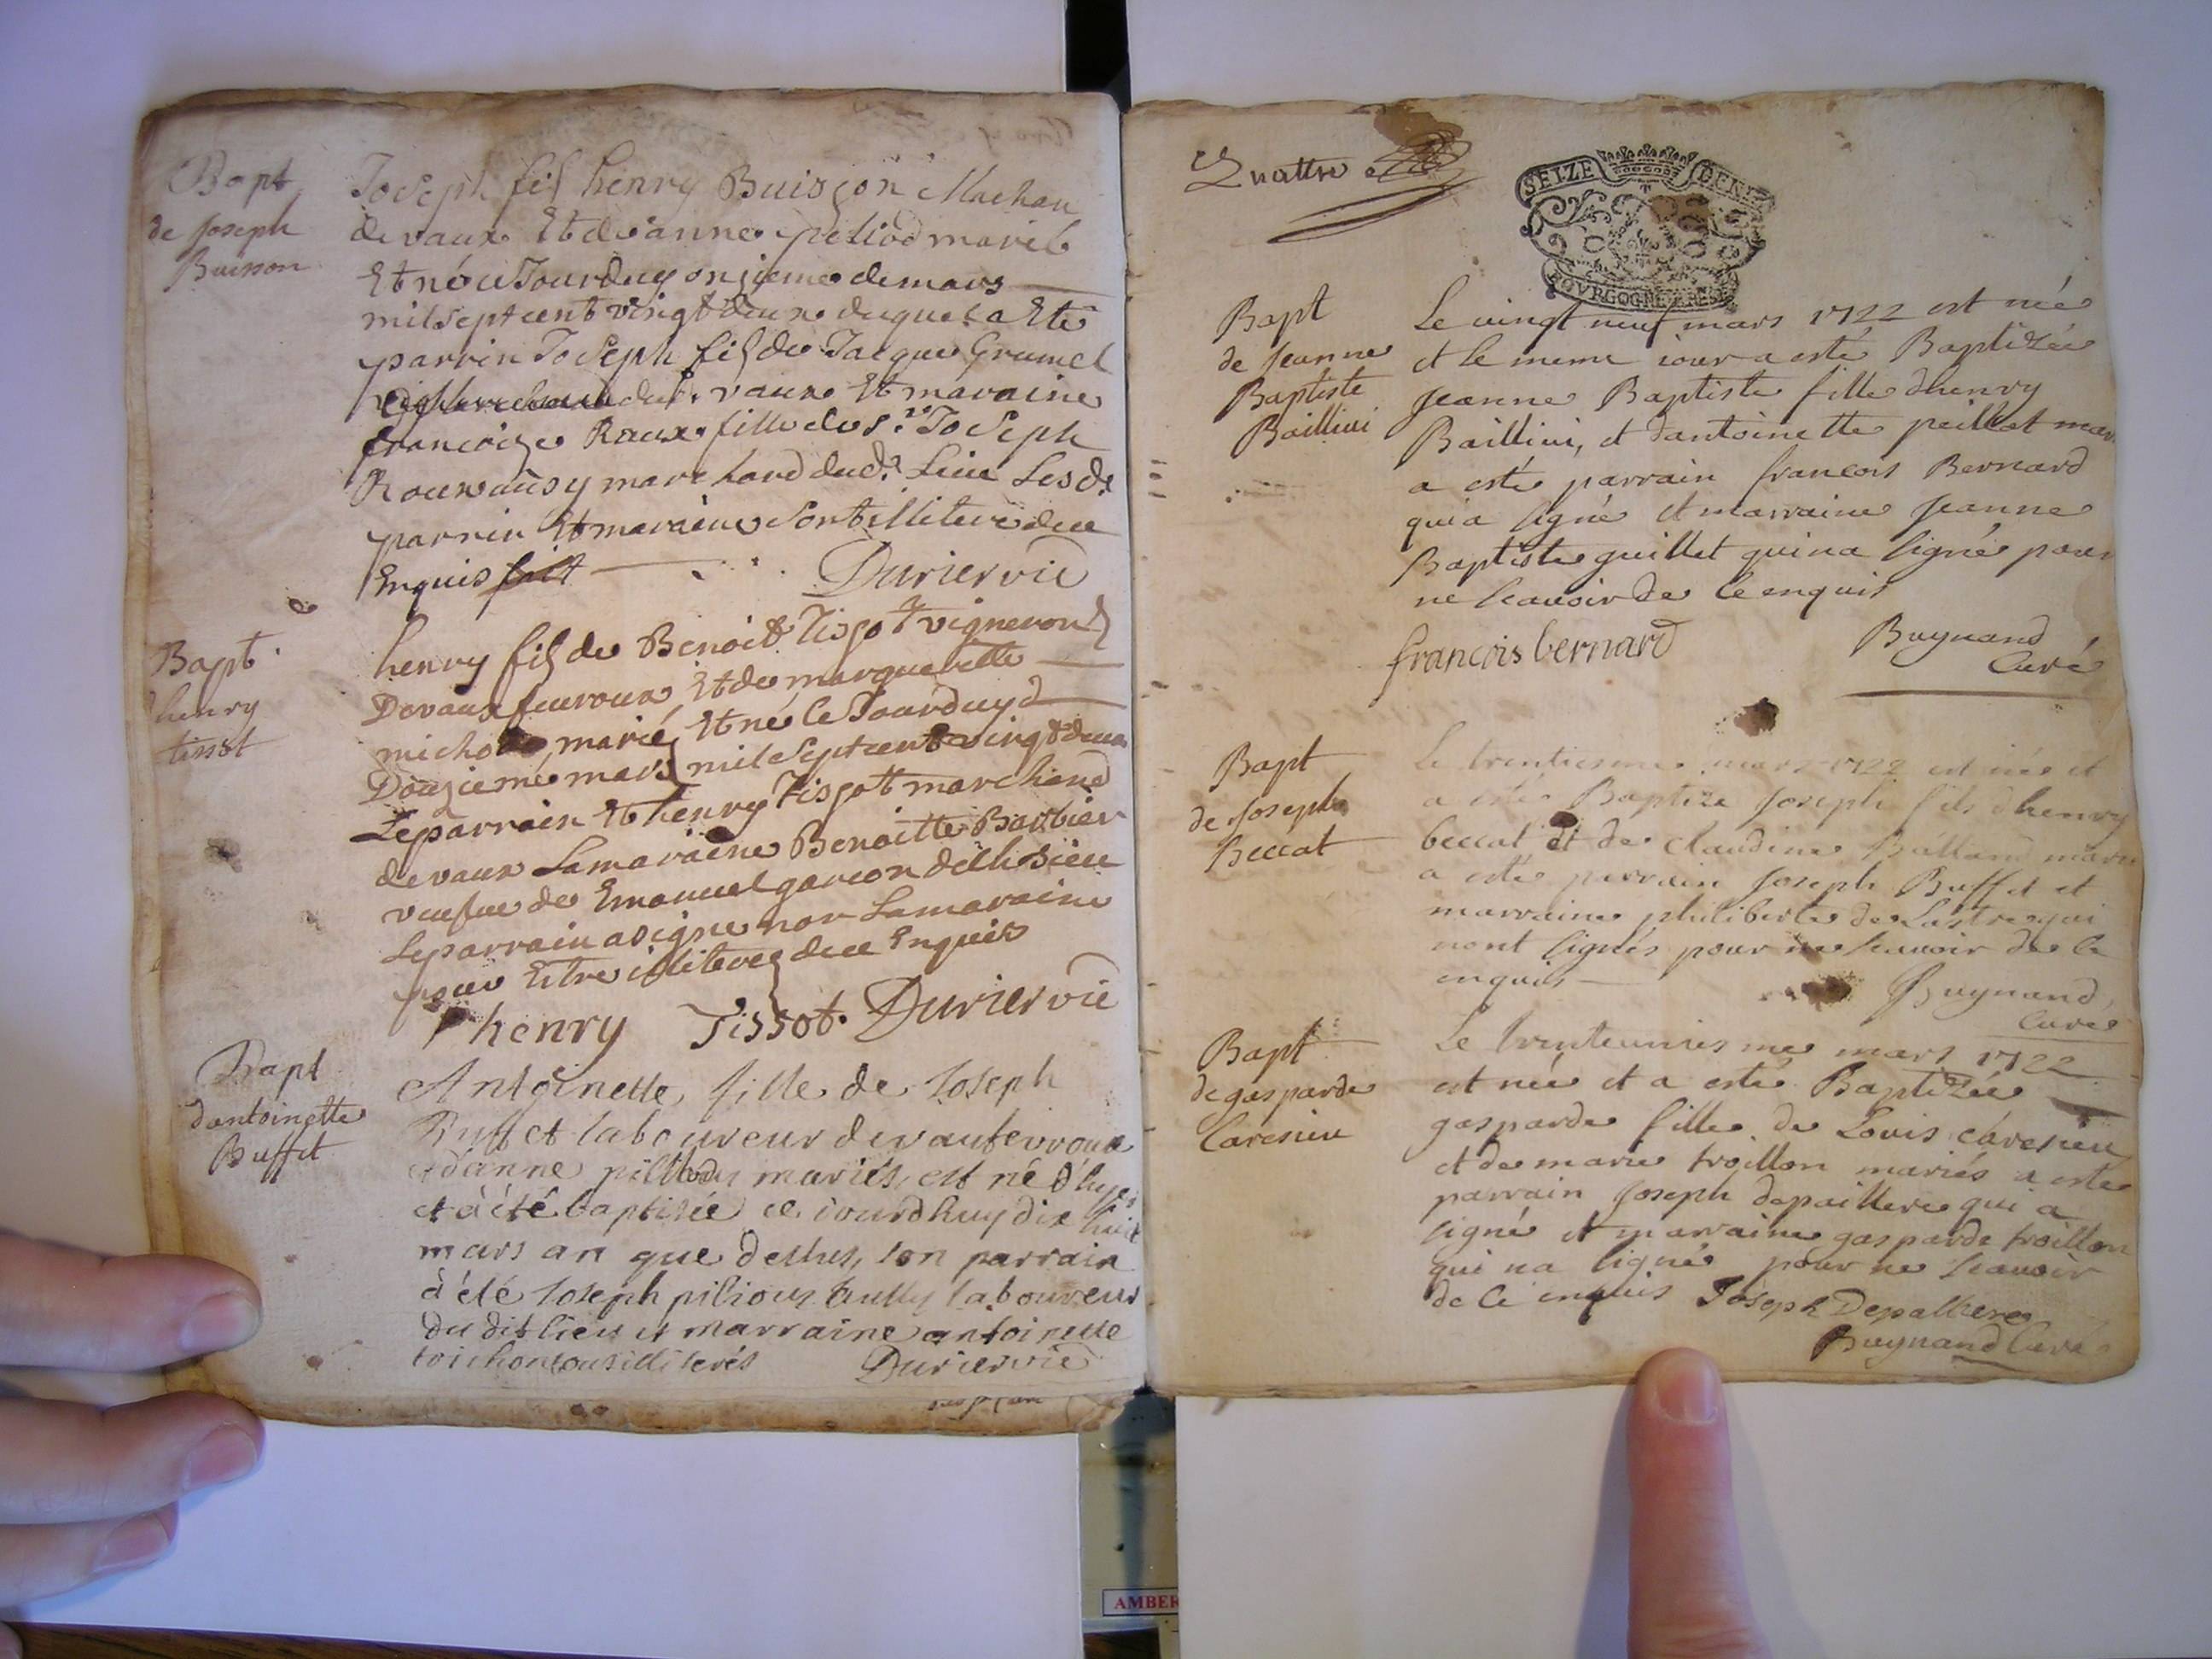 Bapt
de Joseph
Buisson
Joseph fils henry Buisson Machan
devaux Et de anne peliod marié
Et né ce Jourduy onzieme de mars
mil sept cent vingt deux duquel a Ete
parrin Joseph fils de Jacque Grumel
dud. vaux Et maraine
francoise Roux fille de sr. Joseph
Roux aussy marchand dud. Lieu Lesd.
parrin Et maraine sont illiteré de ce
Enquis
Durier vic
Bapt
henry
tissot
henry fils de Benoit Tissot vigneron
Devaux fevroux Et de margueritte
michon marié Et né le Jourduy
Douzieme mars mil sept cent vingt deux
Le parrain Et henry Tissot marchand
devaux La maraine Benoitte Barbier
veufue de Emanuel garcon dudit Lieu
Le parrain a signe non La maraine
pour Estre illiteree de ce Enquis
henry Tissot Durier vic
Bapt
dantoinette
Buffet
Antoinette, fille de Joseph
Buffet laboureur de vaufevroux
et d'anne mariés, est né d'hyer
et à été baptisée ce jourdhuy dix huit
mars an que dessus, son parrain
à été Joseph laboureur
du dit lieu et marraine antoinette
toichon tous illiterés Durier vic
Quattre
SEIZE DEN
BOURGOGNE BRESSE
Bapt
de Jeanne
Baptiste
Baillivi
Le vingt neuf mars 1722 est née
et le meme iour a esté Baptizée
Jeanne Baptiste fille dhenry
Baillivi, et dantoinette peillet mar
a esté parrain francois Bernard
qui a signé et marraine Jeanne
Baptiste guillet qui na signé pour
ne scavoir de ce enquis
francois bernard
Buynand
Curé
Bapt
de Joseph
Beccat
Le trentiesme mars 1722 est née et
a esté Baptize Joseph fils dhenry
beccat et de claudine Balland mari
a esté parrain Joseph Buffet et
marraine philiberte de Lastre qui
nont signés pour ne scavoir de ce
enquis
Buynand
Curé
Bapt
de gasparde
Caresieu
Le trenteuniesme mars 1722
est née et a esté Baptizée
gasparde fille de Louis caresieu
et de marie troillon mariés a este
parrain Joseph depaillere qui a
signé et marraine gasparde troillon
qui na signé pour ne scavoir
de ce enquis Joseph Depalliere
Buynand Curé
AMBER